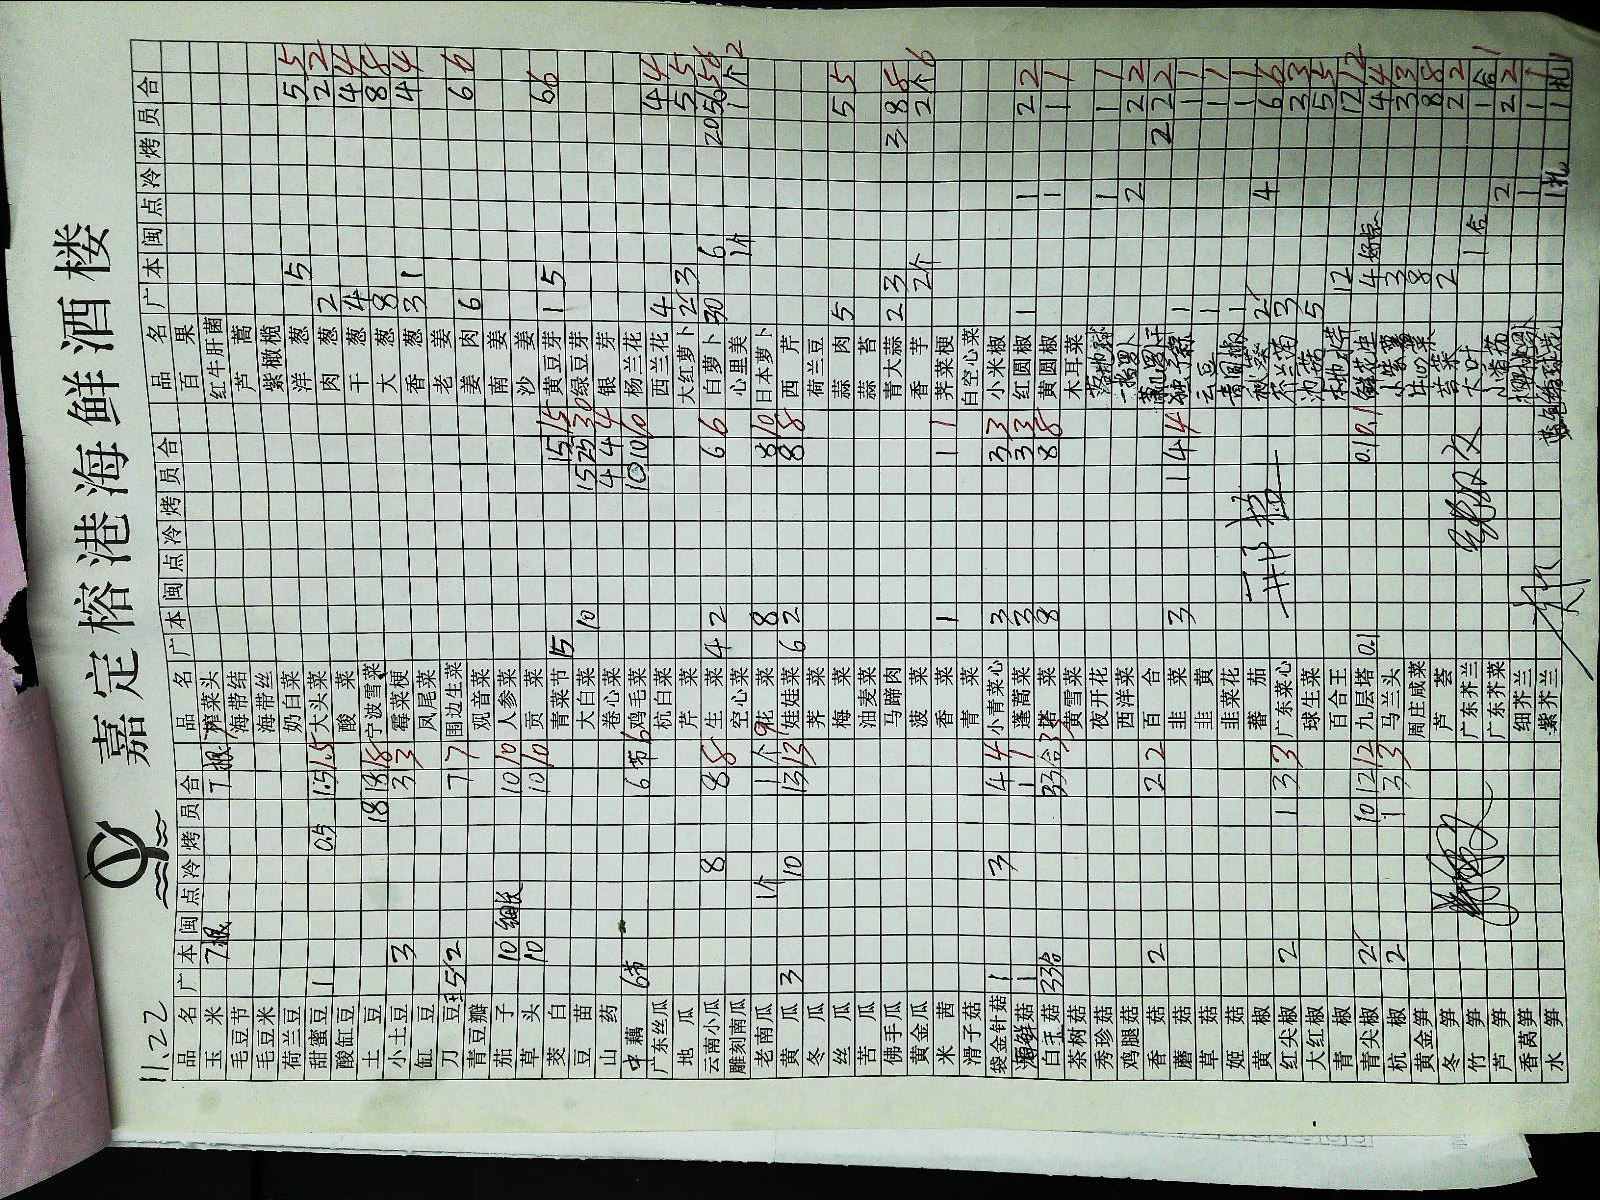 嘉定榕港海鲜酒楼
11.22
品名 广 本 闽 点 冷 烤 员 合 品名 广 本 闽 点 冷 烤 员 合 品名 广 本 闽 点 冷 烤 员 合
玉米 7根 7根 榨菜头 百果
毛豆节 海带结 红牛肝菌
毛豆米 海带丝 芦蒿
荷兰豆 奶白菜 紫橄榄
甜蜜豆 1 0.5 1.5 1.5 大头菜 洋葱 5 5 5
酸缸豆 酸菜 肉葱 2 2 2
土豆 18 18 18 宁波雪菜 干葱 4 4 4
小土豆 3 3 3 霉菜梗 大葱 8 8 8
缸豆 凤尾菜 香葱 3 1 4 4
刀豆 5 2 7 7 围边生菜 老姜
青豆瓣 观音菜 姜肉 6 6 6
茄子 10 细长 10 10 人参菜 南姜
草头 10 10 10 贡菜 沙姜
茭白 青菜节 15 15 15 黄豆芽 1 5 6 6
豆苗 大白菜 10 15 25 30 绿豆芽
山药 卷心菜 4 4 4 银芽
中藕 6节 6节 6 鸡毛菜 10 10 10 杨兰花
广东丝瓜 杭白菜 西兰花 4 4 4
地瓜 芹菜 大红萝卜 2 3 5 5
云南小瓜 8 8 8 生菜 4 2 6 6 白萝卜 30 6 20 56 56
雕刻南瓜 空心菜 心里美 1个 1个 2
老南瓜 1个 1个 9 花菜 8 8 10 日本萝卜
黄瓜 3 10 13 13 娃娃菜 6 2 8 8 西芹
冬瓜 荠菜 荷兰豆
丝瓜 梅菜 蒜肉 5 5 5
苦瓜 油麦菜 蒜苔
佛手瓜 马蹄肉 青大蒜 2 3 3 8 8
黄金瓜 菠菜 香芋 2个 2个 6
米茜 香菜 1 1 1 荠菜梗
滑子菇 青菜 白空心菜
袋金针菇 1 3 4 4 小青菜心 3 3 3 小米椒
海鲜菇 1 1 1 蓬蒿菜 3 3 3 红圆椒 1 1 2 2
白玉菇 33合 33合 塔菜 8 8 8 黄圆椒 1 1 1
茶树菇 黄雪菜 木耳菜
秀珍菇 夜开花 1 1 1
鸡腿菇 西洋菜 2 2 2
香菇 2 2 2 百合 2 2 2
蘑菇 韭菜 3 1 4 4 1 1 1
草菇 韭黄 云豆 1 1 1
姬菇 韭菜花 青圆椒 1 1 1
黄椒 蕃茄 2 4 6 6
红尖椒 2 1 3 3 广东菜心 3 3 3
大红椒 球生菜 5 5 5
青椒 百合王 12 12 12
青尖椒 2 10 12 12 九层塔 0.1 0.1 0.1 4 4 4
杭椒 2 1 3 3 马兰头 3 3 3
黄金笋 周庄咸菜 8 8 8
冬笋 芦荟 苔菜 2 2 2
竹笋 广东芥兰 大叶 1合 1合 1
芦笋 广东芥菜 2 2 2
香莴笋 细芥兰 1 1 1
水笋 紫芥兰 1扎 1扎 1